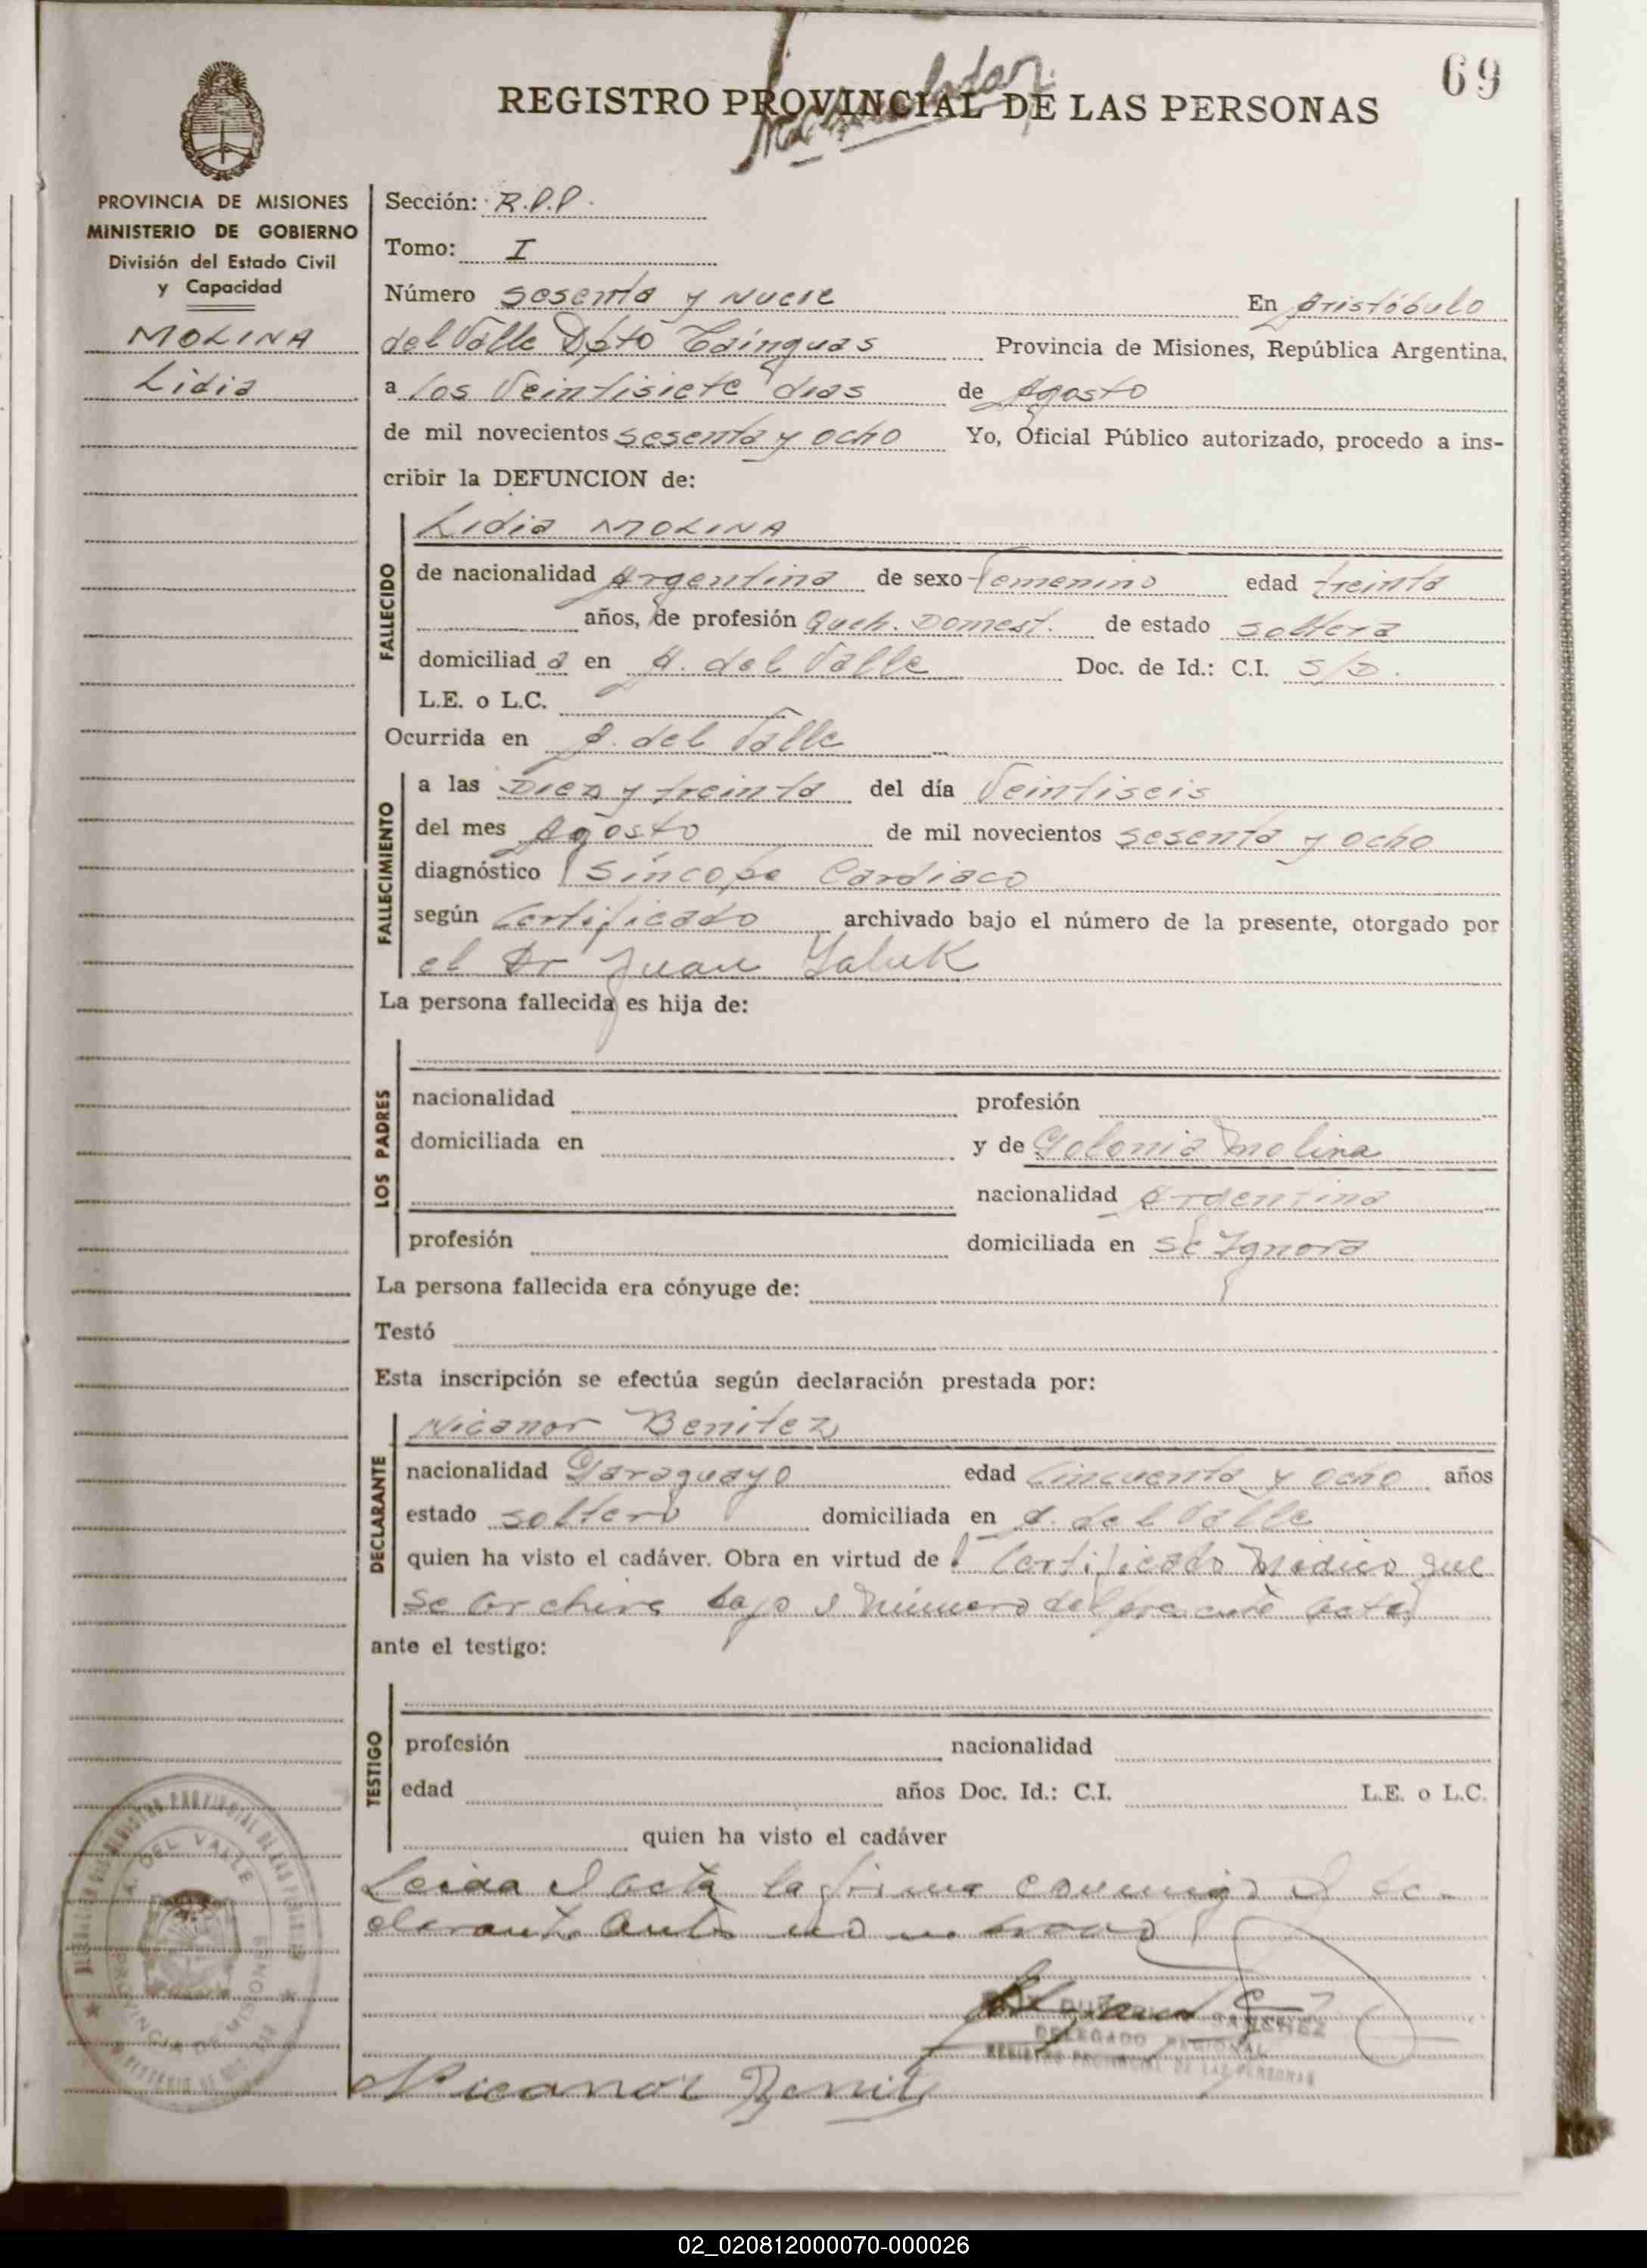 69
REGISTRO PROVINCIAL DE LAS PERSONAS
PROVINCIA DE MISIONES
MINISTERIO DE GOBIERNO
División del Estado Civil
y Capacidad
MOLINA
Lidia
Sección: R.P.P.
Tomo: I
Número sesenta y Nueve En Aristóbulo
del Valle Dpto Cainguas Provincia de Misiones, República Argentina,
a los Veintisiete dias de Agosto
de mil novecientos sesenta y ocho Yo, Oficial Público autorizado, procedo a ins-
cribir la DEFUNCION de:
FALLECIDO
Lidia MOLINA
de nacionalidad Argentina de sexo femenino edad treinta
años, de profesión Queh. Domest. de estado soltera
domiciliad a en A. del Valle Doc. de Id.: C.I. S/D.
L.E. o L.C.
Ocurrida en A. del Valle
FALLECIMIENTO
a las Diez y treinta del día Veintiseis
del mes Agosto de mil novecientos sesenta y ocho
diagnóstico Síncope Cardiaco
según Certificado archivado bajo el número de la presente, otorgado por
el Dr Juan Yaluk
La persona fallecida es hija de:
LOS PADRES
nacionalidad profesión
domiciliada en y de Polonia Molina
nacionalidad Argentina
profesión domiciliada en se Ignora
La persona fallecida era cónyuge de:
Testó
Esta inscripción se efectúa según declaración prestada por:
DECLARANTE
Nicanor Benitez
nacionalidad Paraguayo edad Cincuenta y ocho años
estado soltero domiciliada en A. del Valle
quien ha visto el cadáver. Obra en virtud de Certificado Médico que
se archiva bajo el número del presente acta
ante el testigo:
TESTIGO
profesión nacionalidad
edad años Doc. Id.: C.I. L.E. o L.C.
quien ha visto el cadáver
Leida el acta la firma conmigo el de-
clarante
SANCHEZ
DELEGADO REGIONAL
REGISTRO PROVINCIAL DE LAS PERSONAS
Nicanor Benit
A. DEL VALLE
PROVINCIA DE MISIONES
02_020812000070-000026